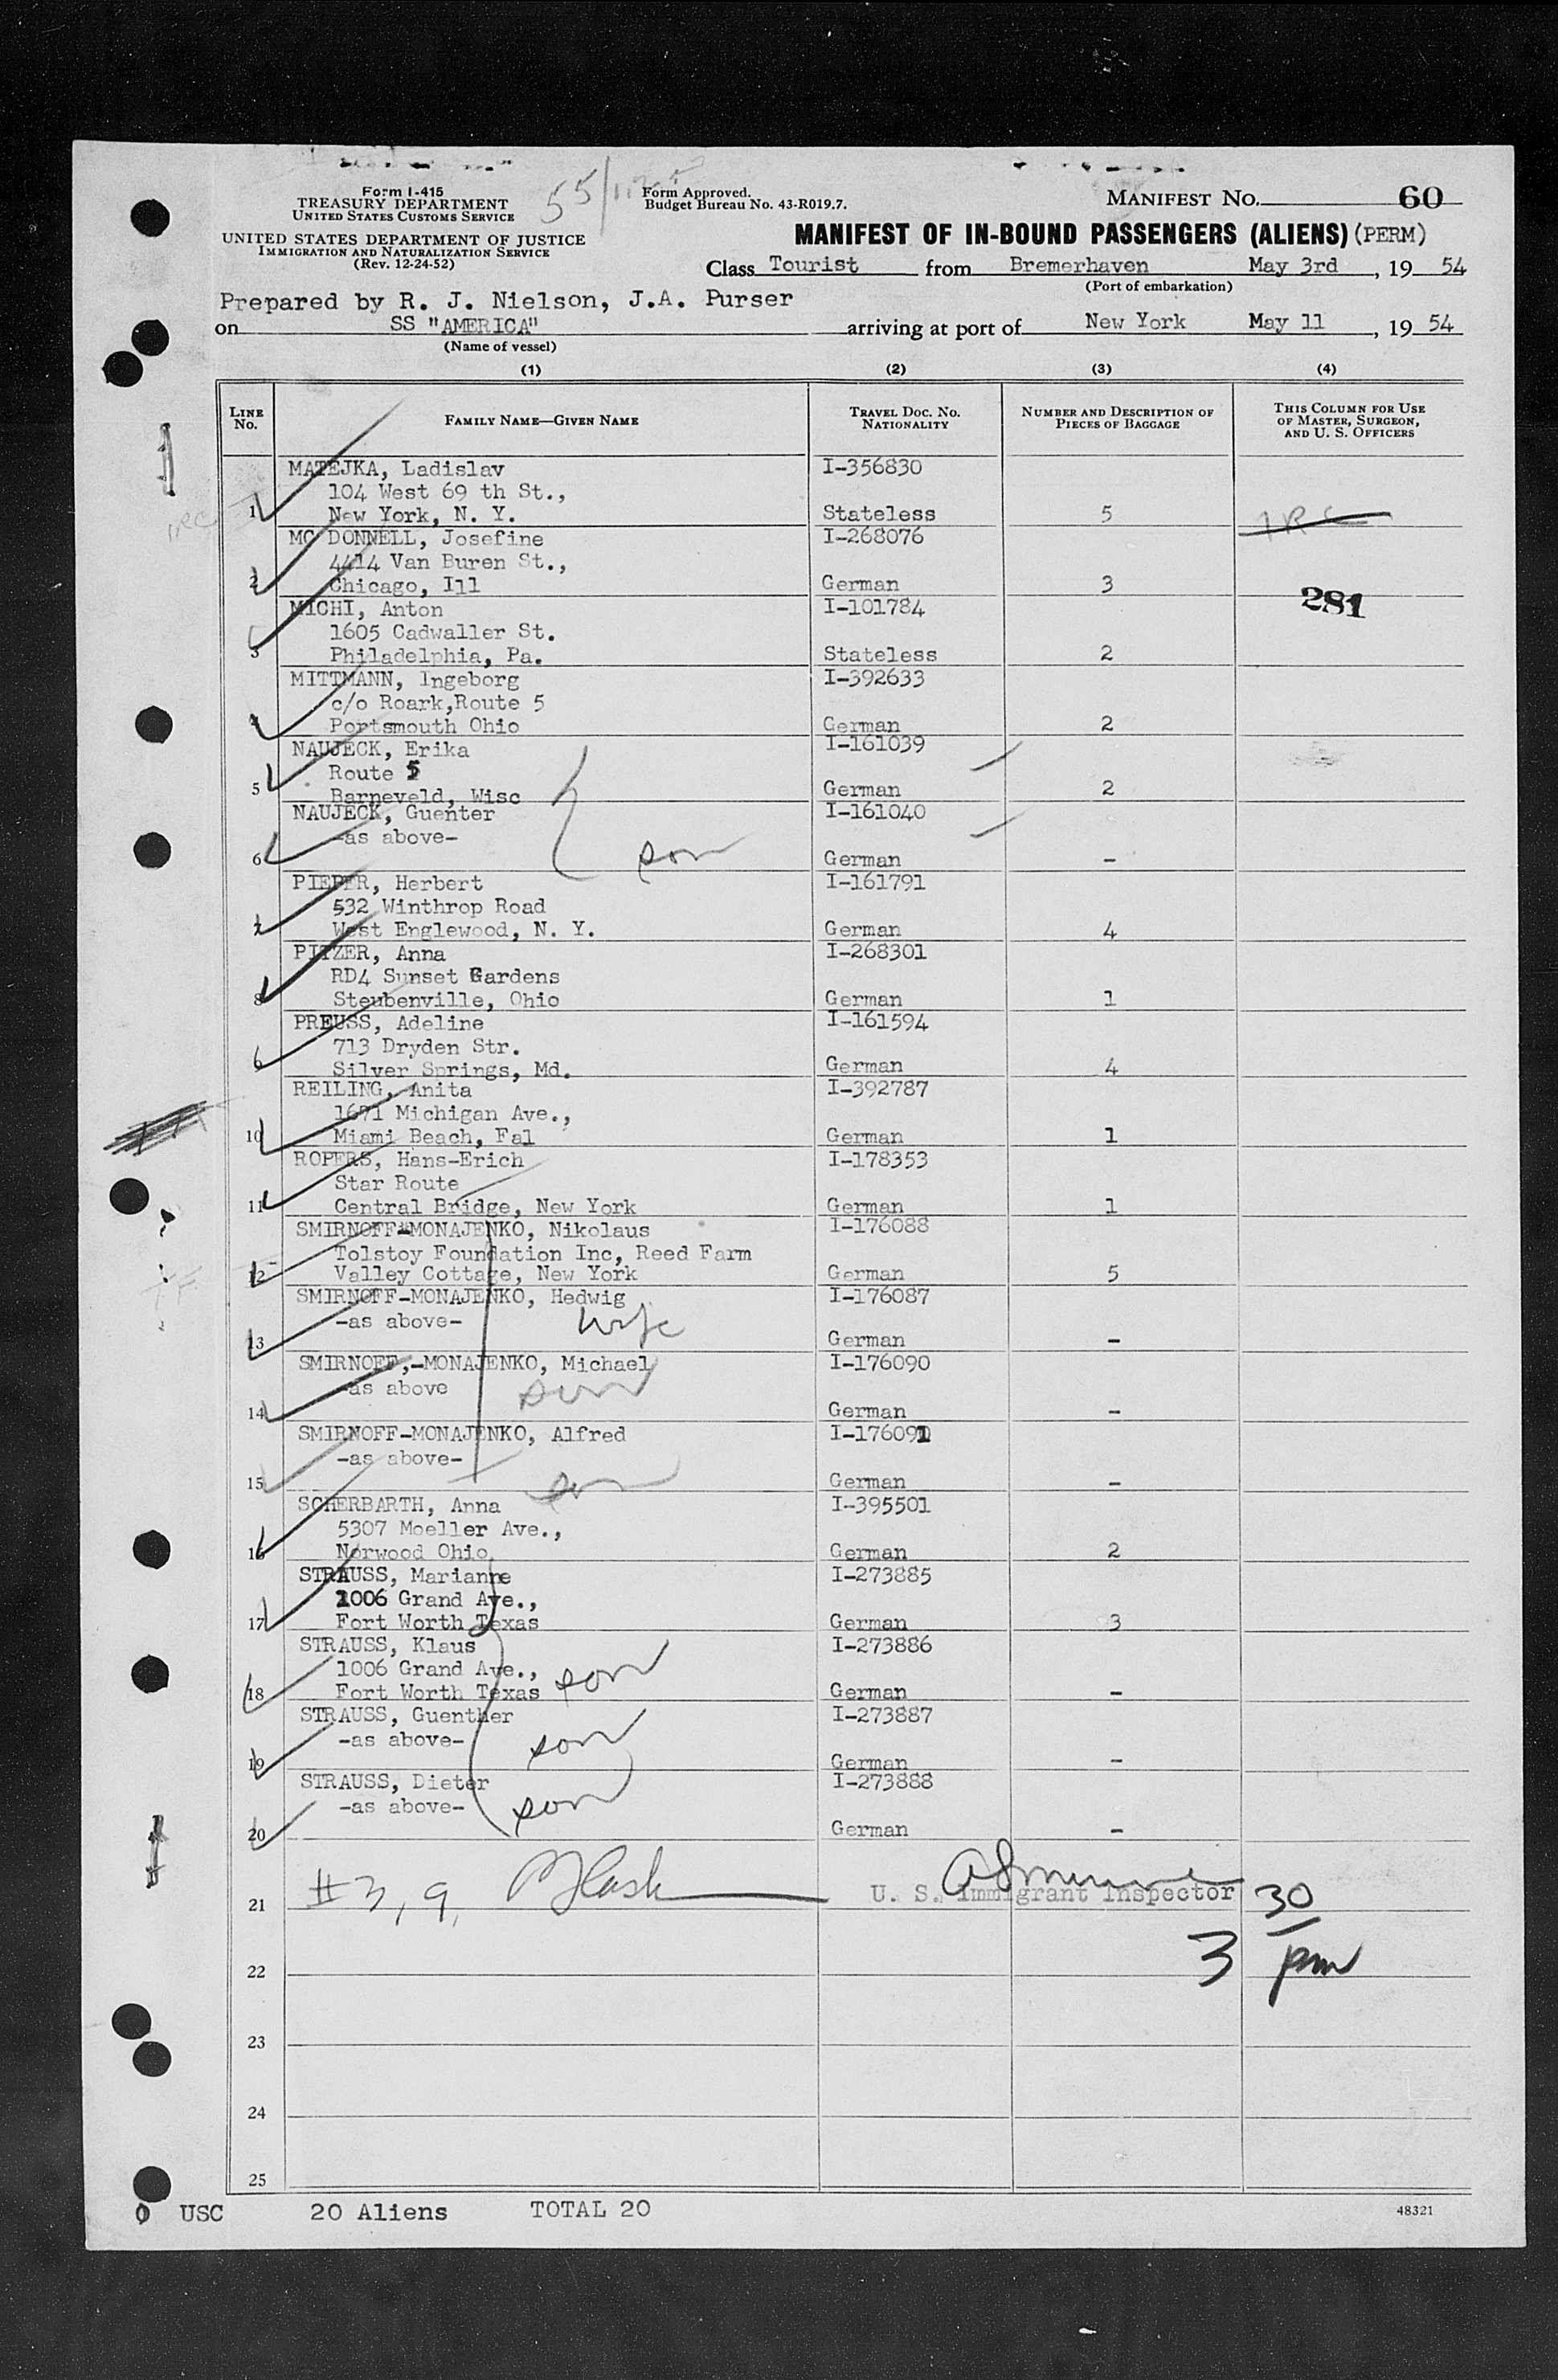 Form I-415
TREASURY DEPARTMENT
UNITED STATES CUSTOMS SERVICE
UNITED STATES DEPARTMENT OF JUSTICE
IMMIGRATION AND NATURALIZATION SERVICE
(Rev. 12-24-52)
55/
Form Approved.
Budget Bureau No. 43-R019.7.
MANIFEST NO. 60
MANIFEST OF IN-BOUND PASSENGERS (ALIENS) (PERM)
Class Tourist from Bremerhaven May 3rd, 19 54
(Port of embarkation)
Prepared by R. J. Nielson, J.A. Purser
on SS "AMERICA" arriving at port of New York May 11, 19 54
(Name of vessel)
(1) (2) (3) (4)
LINE NO. FAMILY NAME—GIVEN NAME TRAVEL DOC. NO. NATIONALITY NUMBER AND DESCRIPTION OF PIECES OF BAGGAGE THIS COLUMN FOR USE OF MASTER, SURGEON, AND U. S. OFFICERS
MATEJKA, Ladislav I-356830
104 West 69 th St.,
1 New York, N. Y. Stateless 5 IRC
MC DONNELL, Josefine I-268076
4414 Van Buren St.,
2 Chicago, Ill German 3
281
MICHI, Anton I-101784
1605 Cadwaller St.
3 Philadelphia, Pa. Stateless 2
MITTMANN, Ingeborg I-392633
c/o Roark,Route 5
4 Portsmouth Ohio German 2
NAUJECK, Erika I-161039
Route 5
5 Barneveld, Wisc German 2
NAUJECK, Guenter I-161040
-as above-
6 son German -
PIEPER, Herbert I-161791
532 Winthrop Road
7 West Englewood, N. Y. German 4
PITZER, Anna I-268301
RD4 Sunset Gardens
8 Steubenville, Ohio German 1
PREUSS, Adeline I-161594
713 Dryden Str.
Silver Springs, Md. German 4
REILING, Anita I-392787
1671 Michigan Ave.,
10 Miami Beach, Fal German 1
ROPERS, Hans-Erich I-178353
Star Route
11 Central Bridge, New York German 1
SMIRNOFF-MONAJENKO, Nikolaus I-176088
Tolstoy Foundation Inc, Reed Farm
12 Valley Cottage, New York German 5
SMIRNOFF-MONAJENKO, Hedwig I-176087
-as above- wife
13 German -
SMIRNOFF,-MONAJENKO, Michael I-176090
-as above son
14 German -
SMIRNOFF-MONAJENKO, Alfred I-176091
-as above-
15 son German -
SCHERBARTH, Anna I-395501
5307 Moeller Ave.,
16 Norwood Ohio German 2
STRAUSS, Marianne I-273885
1006 Grand Ave.,
17 Fort Worth Texas German 3
STRAUSS, Klaus I-273886
1006 Grand Ave., son
18 Fort Worth Texas German -
STRAUSS, Guenther I-273887
-as above- son
19 German -
STRAUSS, Dieter I-273888
-as above- son
20 German -
#3, 9,
21 U. S. Immigrant Inspector 30
3 pm
22
23
24
25
0 USC 20 Aliens TOTAL 20 48321